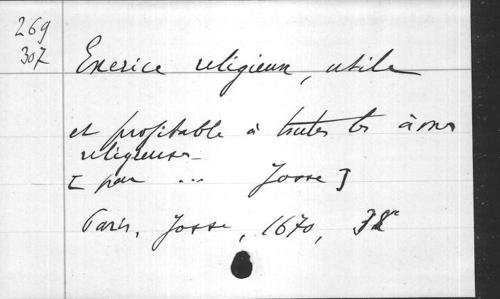 269
307
Exercice religieux, utile
et profitable à toutes les âmes
religieuses
[par ... Josse]
Paris, Josse, 1670,